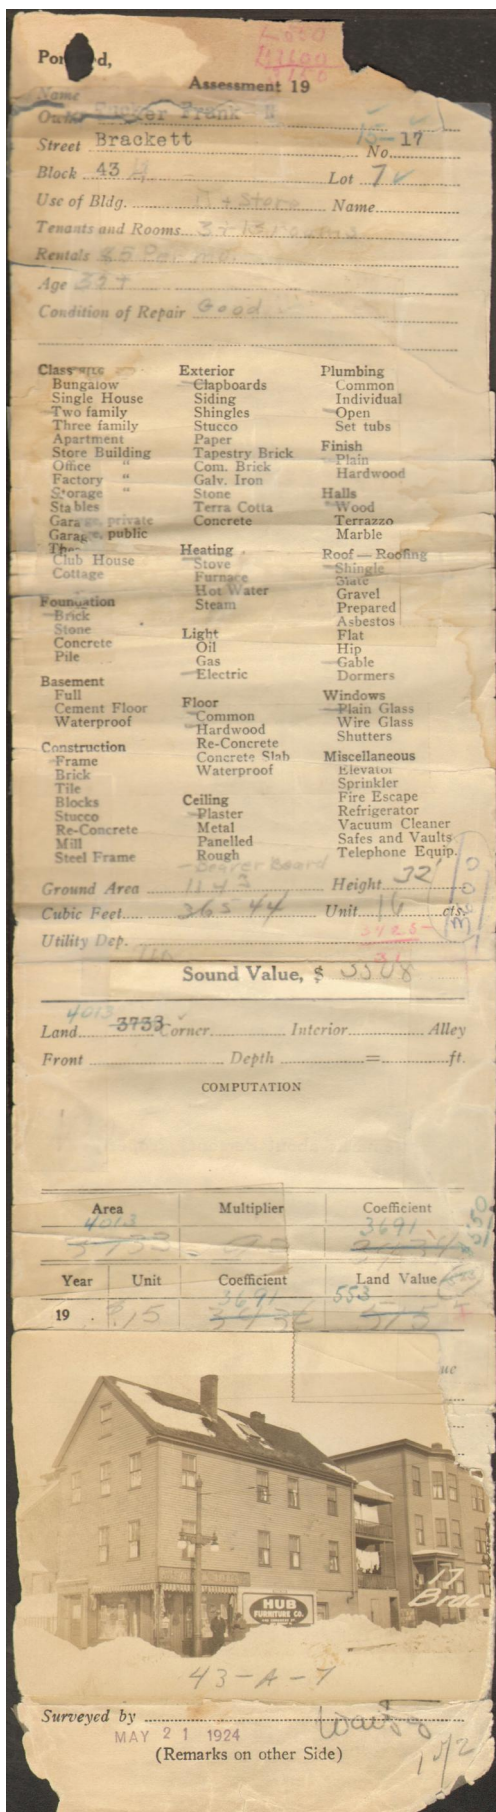 Assessment 19
Name
Frank
Street Brackett No. 15-17
Block 43 Lot 7
Use of Bldg. + Store Name
Tenants and Rooms
Rentals
Age
Condition of Repair Good
Class
Bungalow
Single House
Two family
Three family
Apartment
Store Building
Office "
Factory "
Storage "
Stables
Garage, private
Garage, public
Club House
Cottage
Foundation
Brick
Stone
Concrete
Pile
Basement
Full
Cement Floor
Waterproof
Construction
Frame
Brick
Tile
Blocks
Stucco
Re-Concrete
Mill
Steel Frame
Exterior
Clapboards
Siding
Shingles
Stucco
Paper
Tapestry Brick
Com. Brick
Galv. Iron
Stone
Terra Cotta
Concrete
Heating
Stove
Furnace
Hot Water
Steam
Light
Oil
Gas
Electric
Floor
Common
Hardwood
Re-Concrete
Concrete Slab
Waterproof
Ceiling
Plaster
Metal
Panelled
Rough
Beaver Board
Plumbing
Common
Individual
Open
Set tubs
Finish
Plain
Hardwood
Halls
Wood
Terrazzo
Marble
Roof — Roofing
Shingle
Slate
Gravel
Prepared
Asbestos
Flat
Hip
Gable
Dormers
Windows
Plain Glass
Wire Glass
Shutters
Miscellaneous
Elevator
Sprinkler
Fire Escape
Refrigerator
Vacuum Cleaner
Safes and Vaults
Telephone Equip.
Ground Area Height 32'
Cubic Feet 36544 Unit 16 cts.
Utility Dep.
Sound Value, $
4013
Land 3733 Corner Interior Alley
Front Depth = ft.
COMPUTATION
Area Multiplier Coefficient
4013 3691
3733
Year Unit Coefficient Land Value
3691 553
19 $.15 515
HUB
FURNITURE CO.
17
Brac
43-A-7
Surveyed by
MAY 21 1924
(Remarks on other Side)